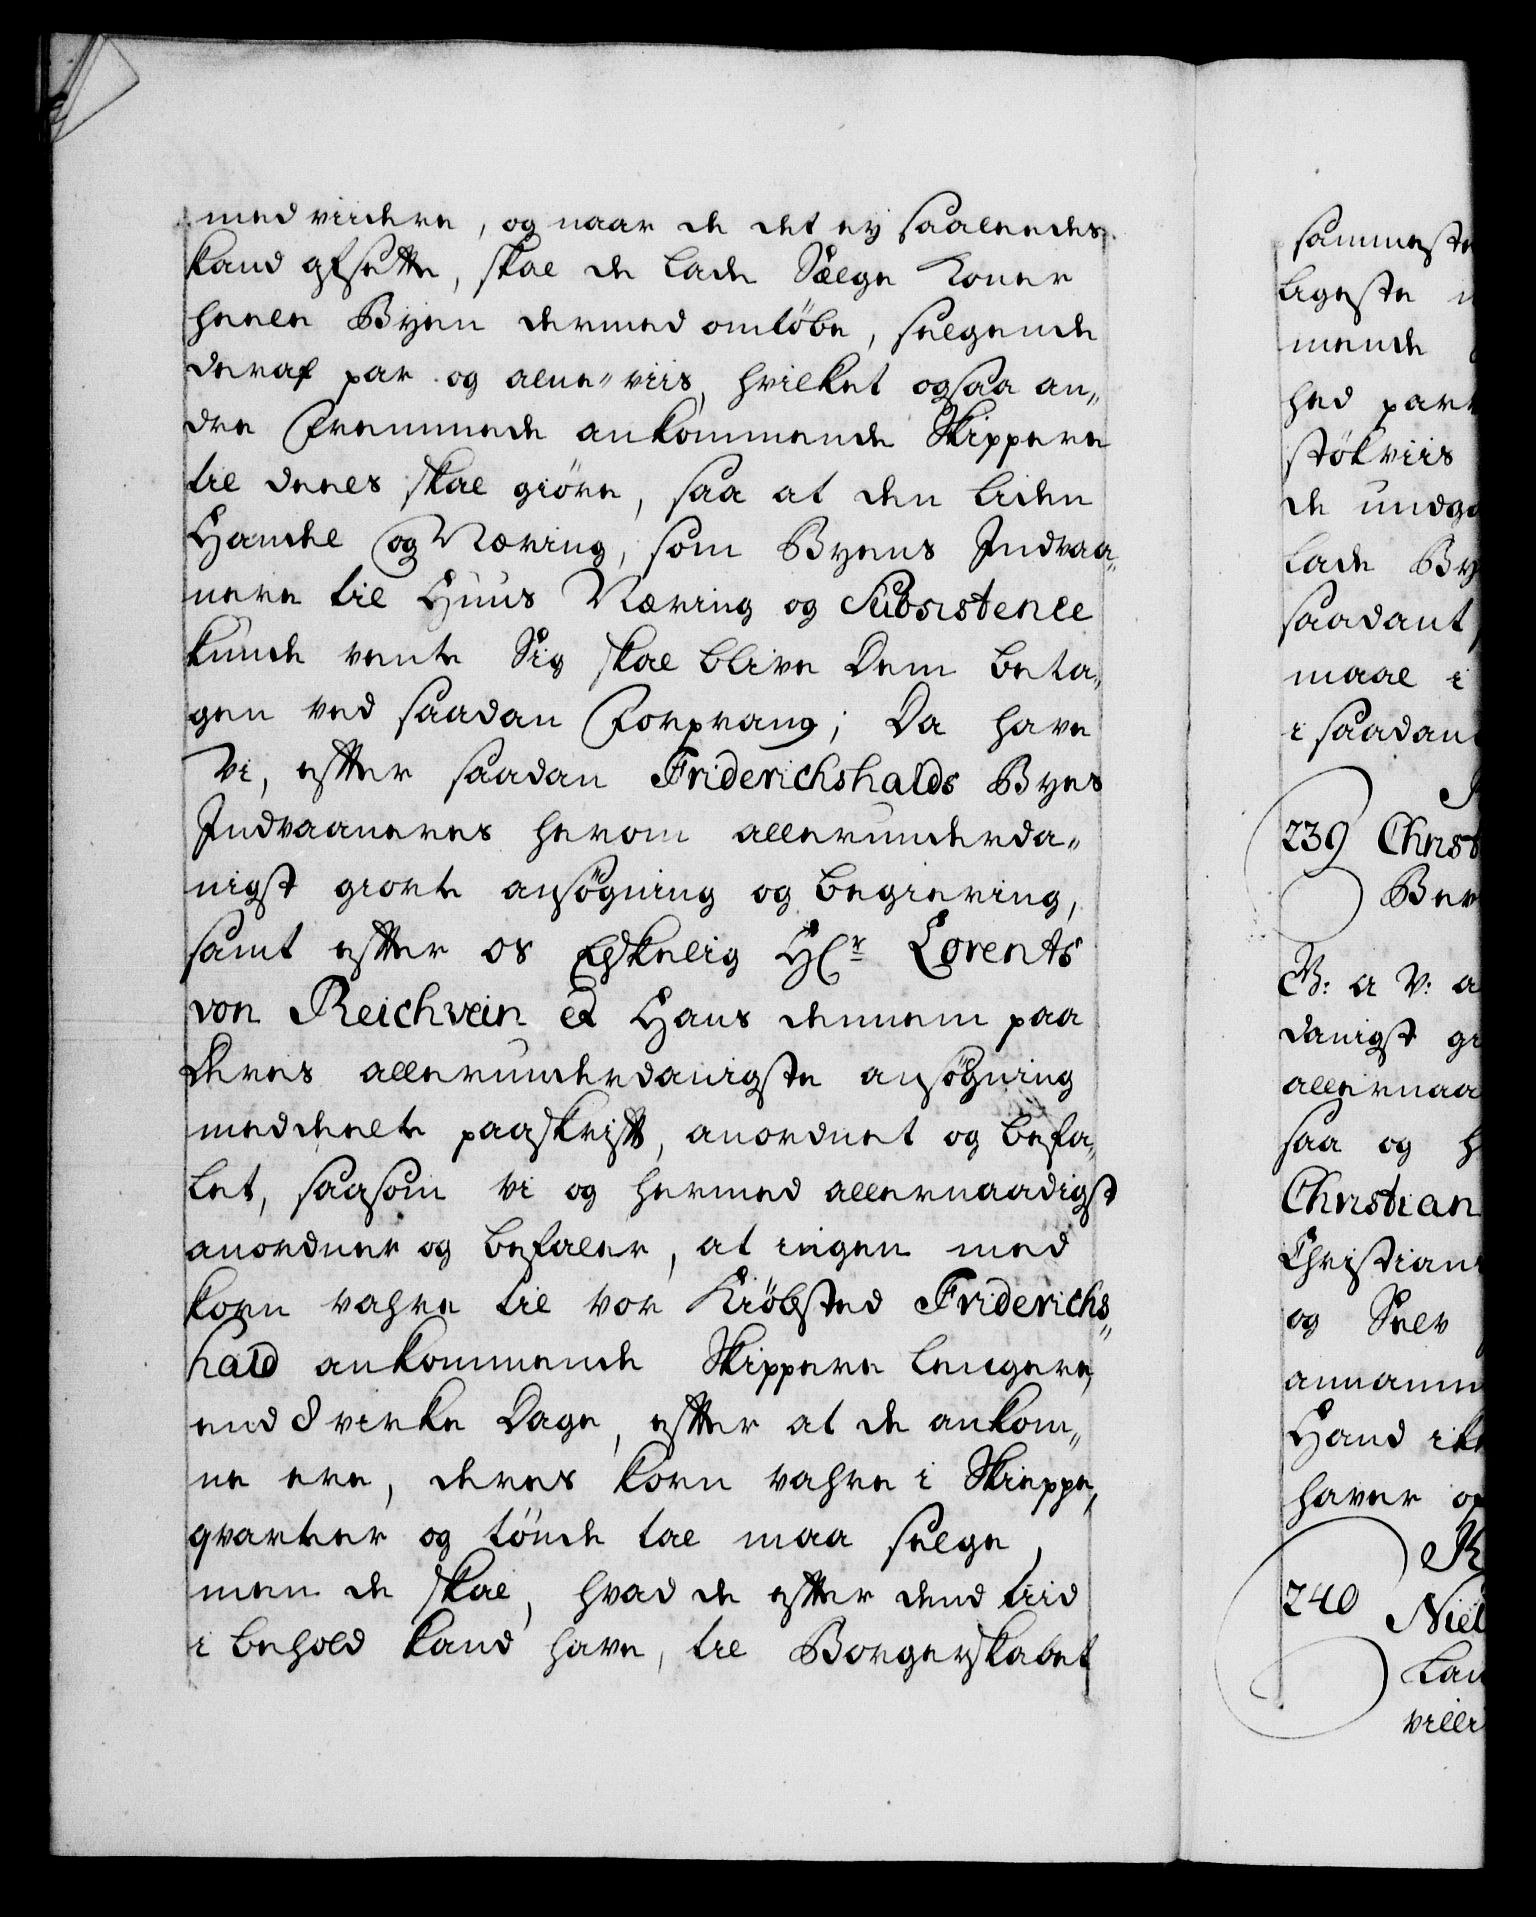 med viidere, og naar de det ey saaleedes
kand afsette, skal de lade Sælge Koner
heele Byen dermed omløbe, selgende
deraf par og alne-viis, hvilket ogsaa an„
dre fremmede ankommende Skippere
til deels skal giøre, saa at den liden
Handel og Næring, som Byens Indvaa„
nere til Huus Næring og Subsistence
kunde vente Sig skal blive Dem beta„
gen ved saadan Forprang; Da have
Vi, efter saadan Friderichshalds Byes
Indvaaneres herom allerunderda„
nigst giorte ansøgning og begiering,
samt efter os Elskelig Hr Lorents
von Reichvein Hans dennem paa
deres allerunderdanigste ansøgning
meddeelte paaskrift, anordnet og befa„
let, saasom vi og hermed allernaadigst
anordner og befaler, at ingen med
korn vahre til vor Kiøbsted Friderichs„
hald ankommende Skippere lengere,
end 8 virke Dage, efter at de ankom„
ne ere, deres korn vahre i Skieppe,
qvarter og tønde tal maa selge,
men de skal, hvad de efter dend tiid
i behold kand have, til Borgerskabet
sammeste
ligeste
mende
hed par
støkviis
de undga
lade By
saadant
maal i
i saadan
239 Christ
Ber
G: A V: a
danigst gi
allernaa
saa og h
Christian
Christian
og Selv
annamm
Hand ik
haver op
240 Niel
Lan
villi